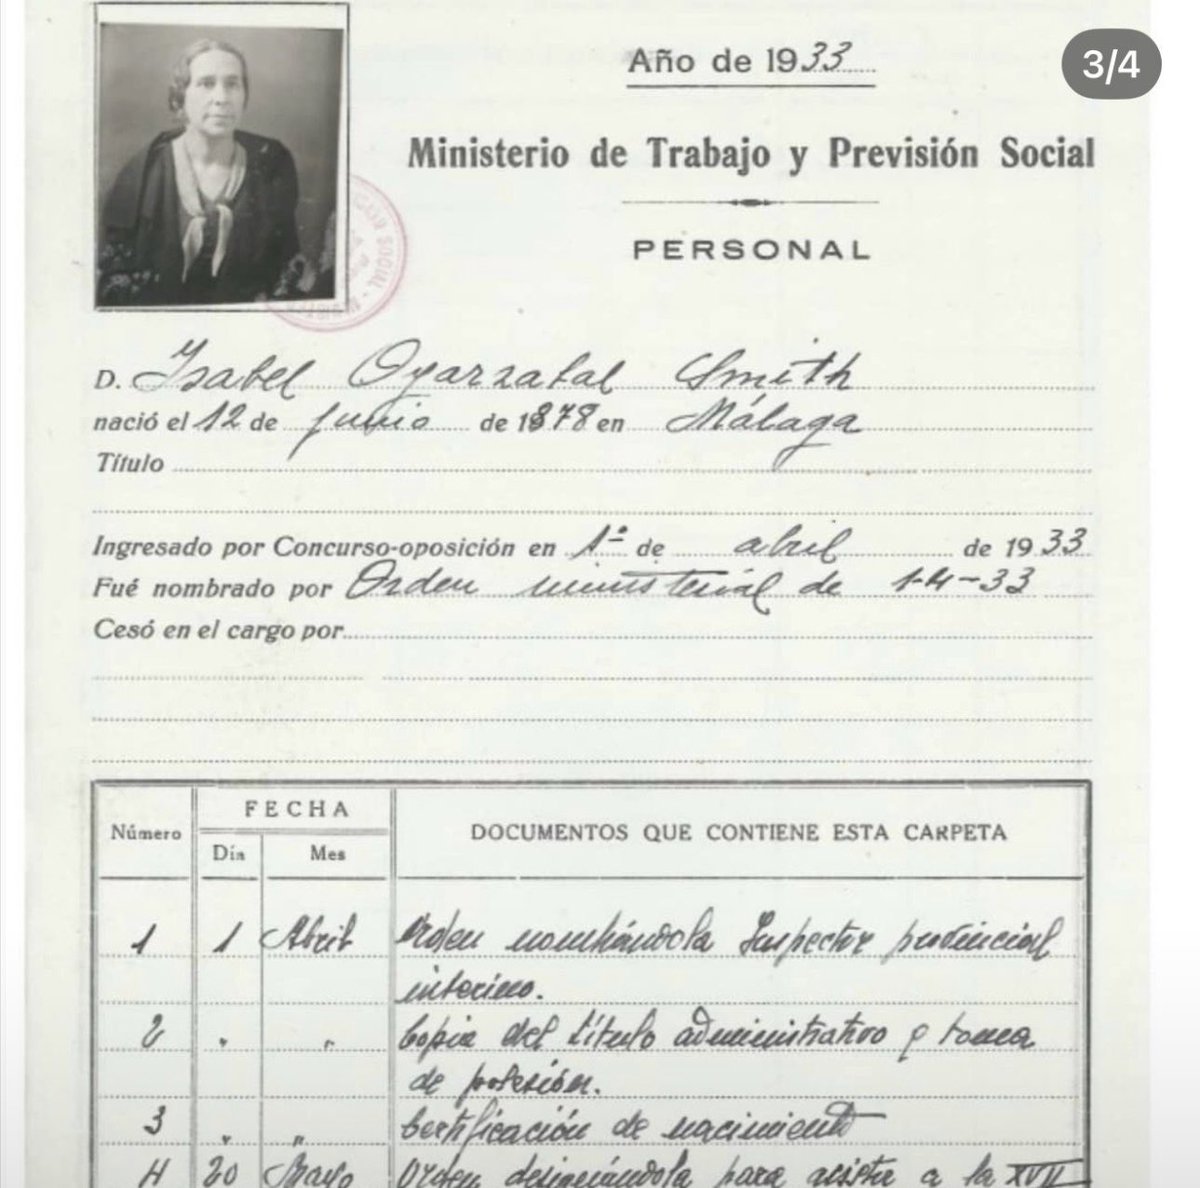 3/4
Año de 1933
Ministerio de Trabajo y Previsión Social
PERSONAL
D. Isabel Oyarzabal Smith
nació el 12 de junio de 1878 en Málaga
Título
Ingresado por Concurso-oposición en 1º de abril de 1933
Fué nombrado por Orden ministerial de 1-4-33
Cesó en el cargo por
Número
FECHA
Día Mes
DOCUMENTOS QUE CONTIENE ESTA CARPETA
1 1 Abril Orden nombrándola Inspector provincial
interino.
2 " " Copia del título administrativo y toma
de posesión.
3 " " Certificación de nacimiento
4 20 Mayo Orden designándola para asistir a la XVII